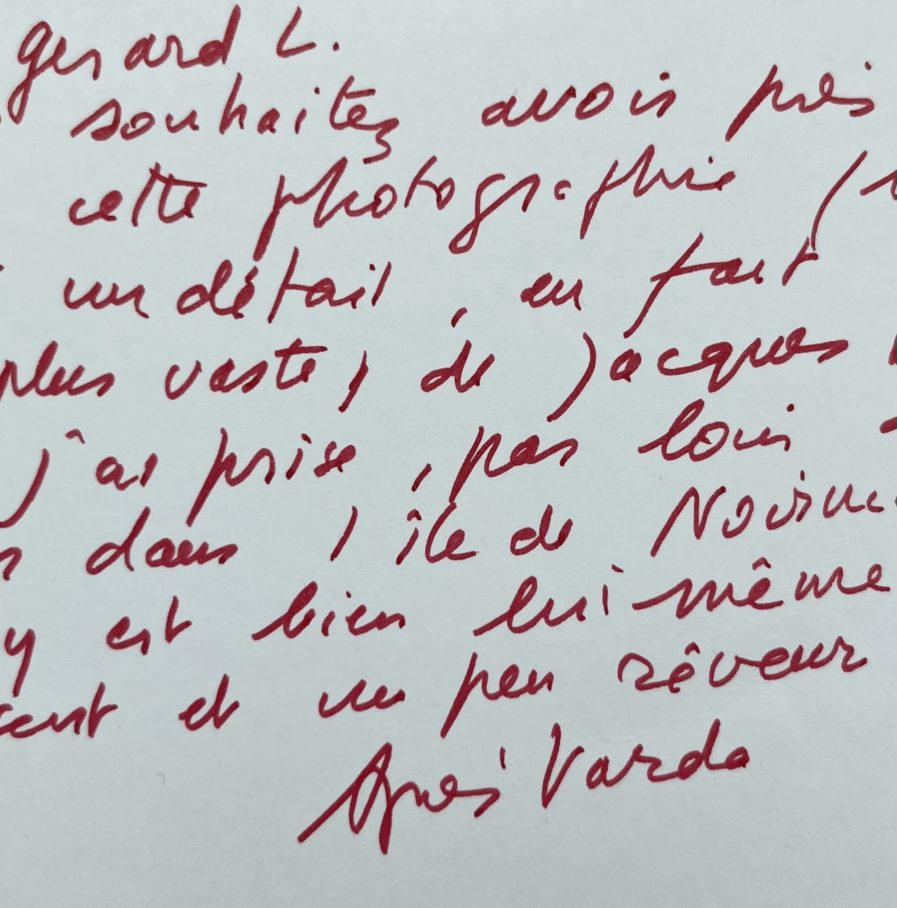 gérard L.
souhaitez avoir près
cette photographie (
un détail, en fait
plus vaste, de Jacques
j'ai prise, pas loin
dans l'île de Noirm
y est bien lui-même
et un peu rêveur
Agnès Varda